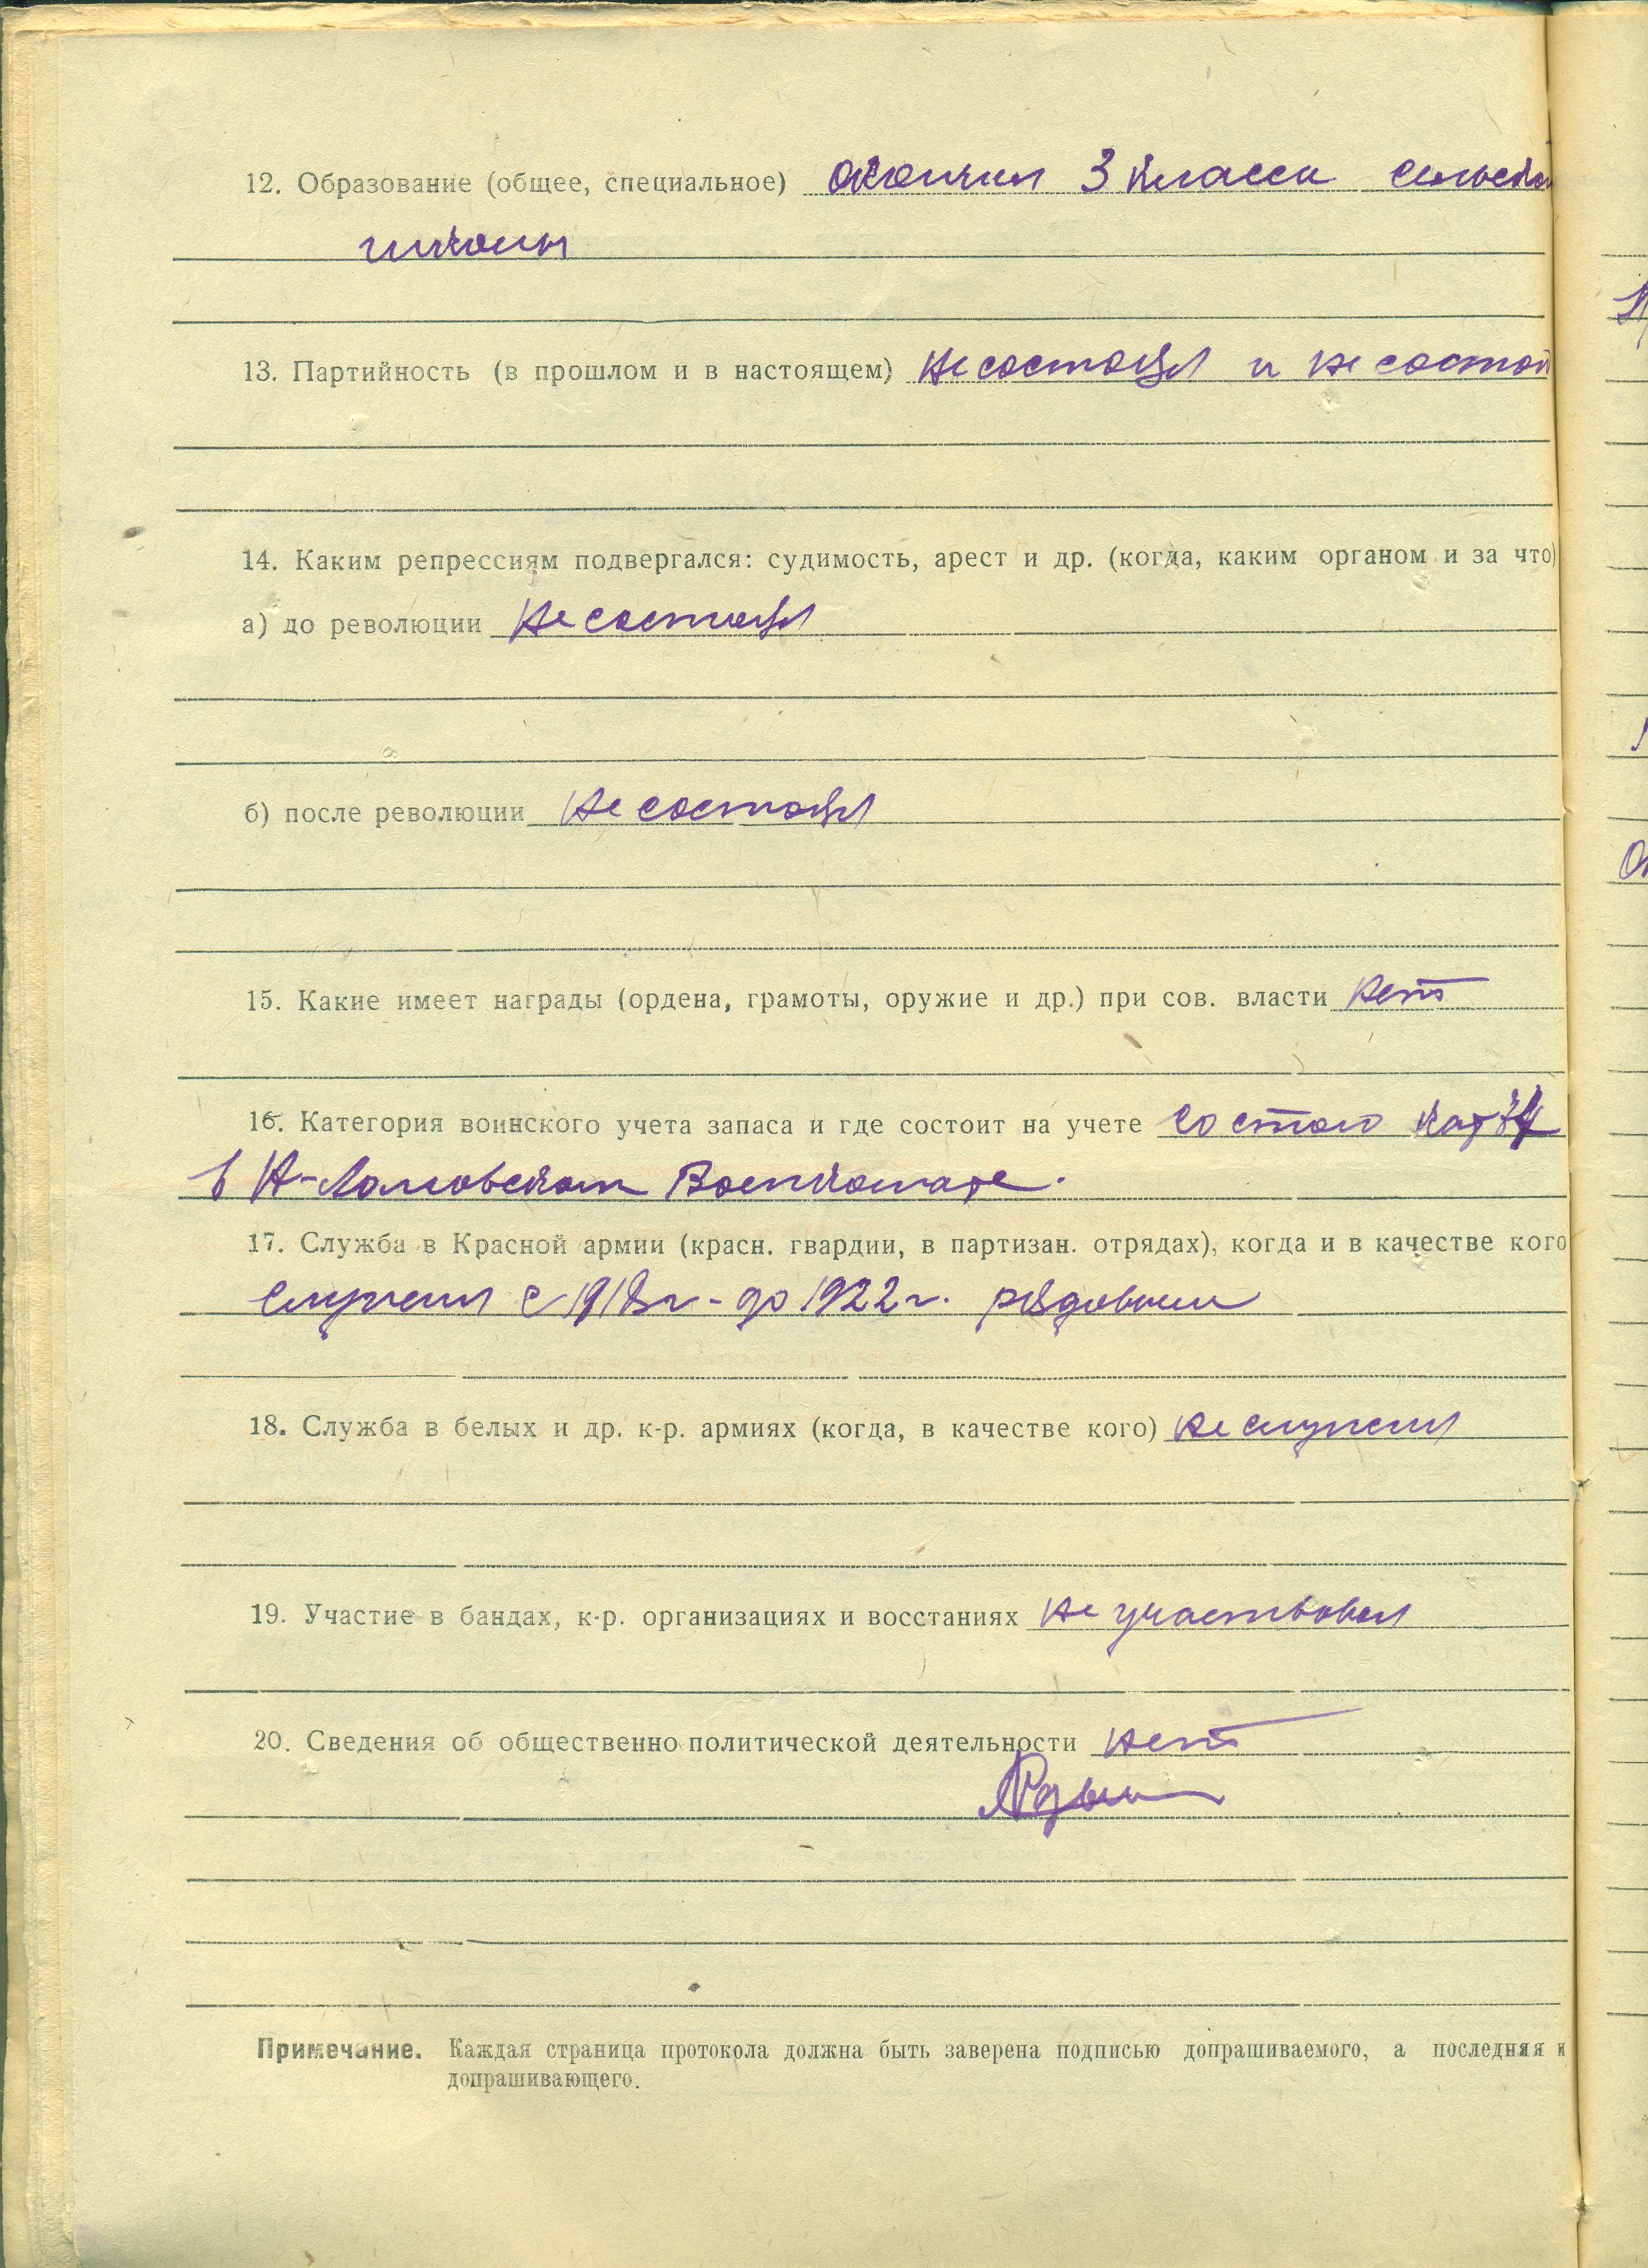 12. Образование (общее, специальное) окончил 3 класса сельской
школы
13. Партийность (в прошлом и в настоящем) не состоял и не состою
14. Каким репрессиям подвергался: судимость, арест и др. (когда, каким органом и за что)
а) до революции не состоял
б) после революции не состоял
15. Какие имеет награды (ордена, грамоты, оружие и др.) при сов. власти нет
16. Категория воинского учета запаса и где состоит на учете состою
в Н-Ломовском Военкомате.
17. Служба в Красной армии (красн. гвардии, в партизан. отрядах), когда и в качестве кого
служил с 1918г - до 1922г. рядовым
18. Служба в белых и др. к-р. армиях (когда, в качестве кого) не служил
19. Участие в бандах, к-р. организациях и восстаниях не участвовал
20. Сведения об общественно политической деятельности нет
Примечание. Каждая страница протокола должна быть заверена подписью допрашиваемого, а последняя и
допрашивающего.